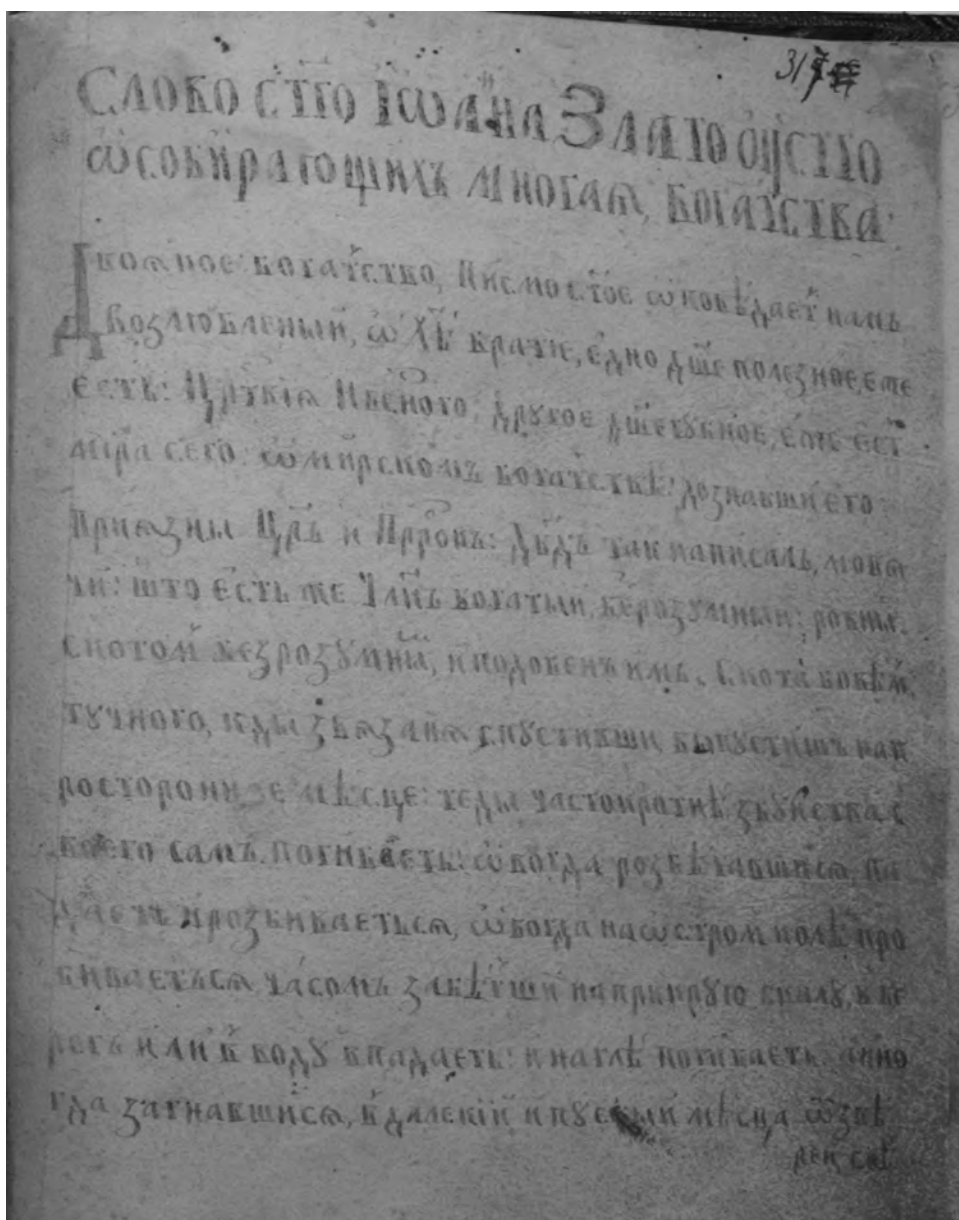 317
Слово ст҃го Іѡа́нна Златоꙋстго
ѡ собира́ющихъ многаѧ, бога́тства:
Двоѧ́кое богатство, Писмо ст҃ое ѡповѣдаетъ намъ
возлюбленыи, ѡ Хѣ҃ братїе, е́дно дш҃е полезное, еже
е́сть: Црст҃вїѧ Нб҃сного, другое дш҃егубное, еже ест
мира сего: ѡ мирскомъ богатствѣ: дознавши его
Приѧзны Цр҃ь и Пррокъ: Дв҃дъ так написалъ, мовѧ
чи: што е́сть же Чл҃къ богатыи, безрозумныи: ровны
скотом безрозумны, и подобенъ имъ. Скота бовѣм
тучного, кды звѧзанѧ спустивши, выпустишъ на п
росторонное мѣсце: теды частокротнѣ з буйства с
воего самъ погибаеть: ѡвогда розбѣгавшисѧ, па
даетъ и розбиваеться, ѡвогда на ѡстром колѣ про
биваетьсѧ, часомъ забѣгши на прикрую скалу, в бе
рогъ или в воду впадаеть: и наглѣ погибаеть: а ино
гда загнавшисѧ, в далекїи и пустыи мѣсца ѿ звѣ
рей свѣ